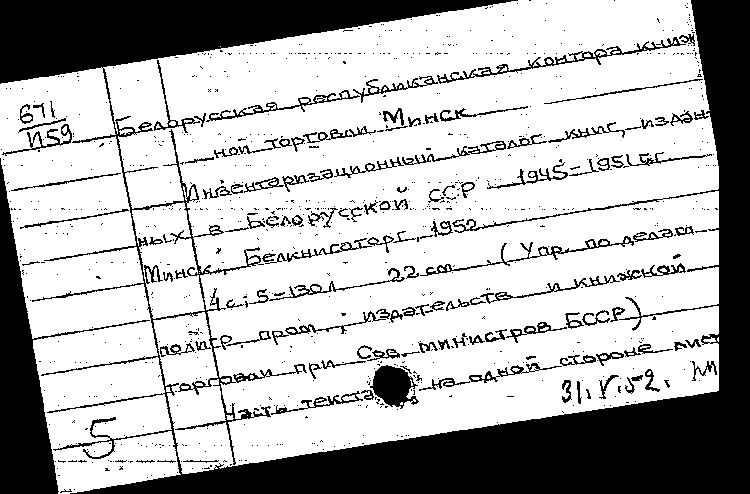 671
И59
Белорусская республиканская контора книж
ной торговли Минск
Инвентаризационный каталог книг, издан
ных в Белорусской ССР 1945-1951 гг.
Минск, Белкниготорг, 1952
4 с; 5-130 л 22 см. (Упр. по делам
полигр. пром., издательств и книжной
торговли при Сов. министров БССР).
Часть текста на одной стороне лист
31.V.52.
5